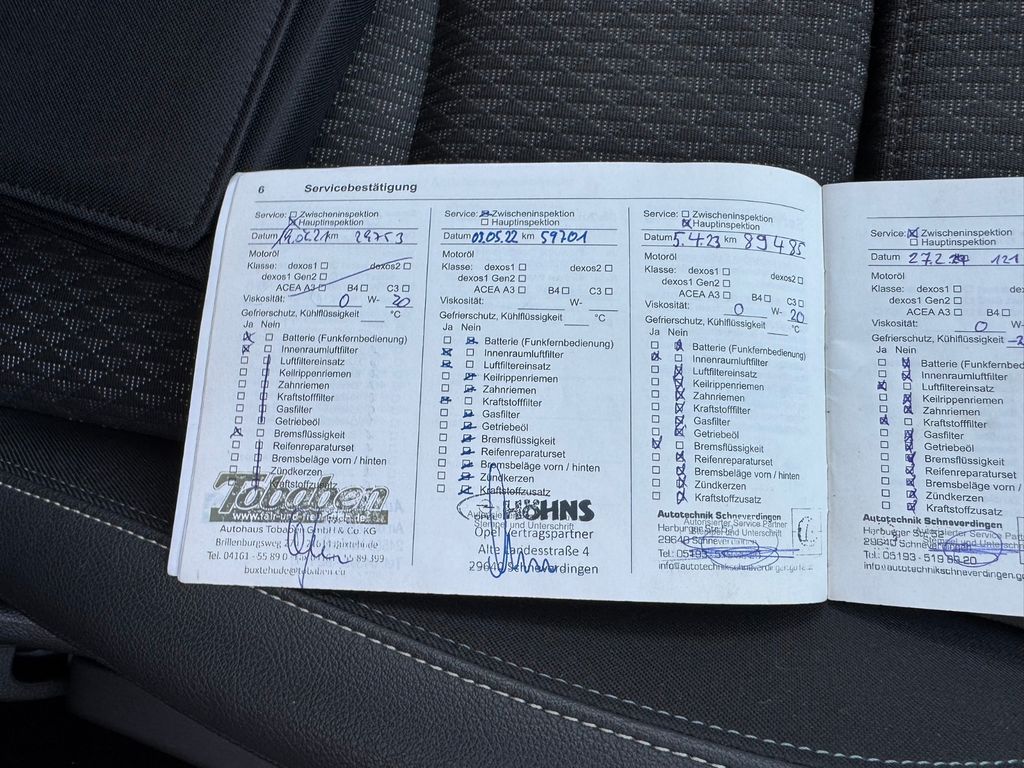 6 Servicebestätigung
Service: Zwischeninspektion
Hauptinspektion
Datum km 29753
Motoröl
Klasse: dexos1 dexos2
dexos1 Gen2
ACEA A3 B4 C3
Viskosität: 0 W- 20
Gefrierschutz, Kühlflüssigkeit °C
Ja Nein
Batterie (Funkfernbedienung)
Innenraumluftfilter
Luftfiltereinsatz
Keilrippenriemen
Zahnriemen
Kraftstofffilter
Gasfilter
Getriebeöl
Bremsflüssigkeit
Reifenreparaturset
Bremsbeläge vorn / hinten
Zündkerzen
Kraftstoffzusatz
Tobaben
Autohaus Tobaben GmbH & Co. KG
Brillenburgsweg
Tel. 04161 - 55 89 0
buxtehude@tobaben.eu
Service: Zwischeninspektion
Hauptinspektion
Datum 02.05.22 km 59701
Motoröl
Klasse: dexos1 dexos2
dexos1 Gen2
ACEA A3 B4 C3
Viskosität: W-
Gefrierschutz, Kühlflüssigkeit °C
Ja Nein
Batterie (Funkfernbedienung)
Innenraumluftfilter
Luftfiltereinsatz
Keilrippenriemen
Zahnriemen
Kraftstofffilter
Gasfilter
Getriebeöl
Bremsflüssigkeit
Reifenreparaturset
Bremsbeläge vorn / hinten
Zündkerzen
Kraftstoffzusatz
HÖHNS
Stempel und Unterschrift
Opel Vertragspartner
Alte Landesstraße 4
29640 Schneverdingen
Service: Zwischeninspektion
Hauptinspektion
Datum 5.4.23 km 89485
Motoröl
Klasse: dexos1 dexos2
dexos1 Gen2
ACEA A3 B4 C3
Viskosität: 0 W- 20
Gefrierschutz, Kühlflüssigkeit °C
Ja Nein
Batterie (Funkfernbedienung)
Innenraumluftfilter
Luftfiltereinsatz
Keilrippenriemen
Zahnriemen
Kraftstofffilter
Gasfilter
Getriebeöl
Bremsflüssigkeit
Reifenreparaturset
Bremsbeläge vorn / hinten
Zündkerzen
Kraftstoffzusatz
Autotechnik Schneverdingen
Autorisierter Service Partner
Harburger Str.
Stempel und Unterschrift
29640 Schneverdingen
Tel.: 05193-
info@autotechnikschneverdingen.de
Service: Zwischeninspektion
Hauptinspektion
Datum 27.2 121
Motoröl
Klasse: dexos1
dexos1 Gen2
ACEA A3 B4
Viskosität: 0
Gefrierschutz, Kühlflüssigkeit
Ja Nein
Batterie (Funkfernbed
Innenraumluftfilter
Luftfiltereinsatz
Keilrippenriemen
Zahnriemen
Kraftstofffilter
Gasfilter
Getriebeöl
Bremsflüssigkeit
Reifenreparaturset
Bremsbeläge vorn / h
Zündkerzen
Kraftstoffzusatz
Autotechnik Schneverdingen
Harburger Str.
Autorisierter Service Pa
Stempel und Untersch
29640
Tel.: 05193 - 519 69 20
info@autotechnikschneverdingen.